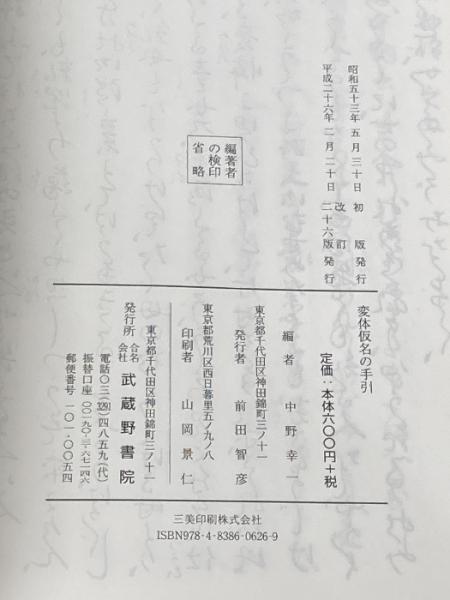 昭和五十三年 五月三十日 初版発行
平成二十六年 二月二十日 改訂二十六版発行
編著者
の検印
省略
変体仮名の手引
定価:本体六〇〇円+税
編者 中野幸一
東京都千代田区神田錦町三ノ十一
発行者 前田智彦
東京都荒川区西日暮里五ノ九ノ八
印刷者 山岡景仁
東京都千代田区神田錦町三ノ十一
発行所 合名会社 武蔵野書院
電話〇三(3291)四八五九(代)
振替口座 〇〇一九〇-三-六七二一四六
郵便番号 一〇一-〇〇五四
三美印刷株式会社
ISBN978-4-8386-0626-9